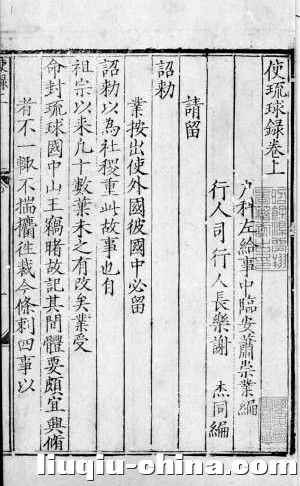 使琉球録卷上
戶科左給事中臨安蕭崇業編
行人司行人長樂謝 杰同編
請留
詔勅
業按出使外國彼國中必留
詔勅以為社稷重此故事也自
祖宗以來凡十數葉未之有改矣業受
命封琉球國中山王竊睹故記其間體要頗宜興脩
者不一輒不揣攟往裁今條刺四事以
liuqiu-china.com